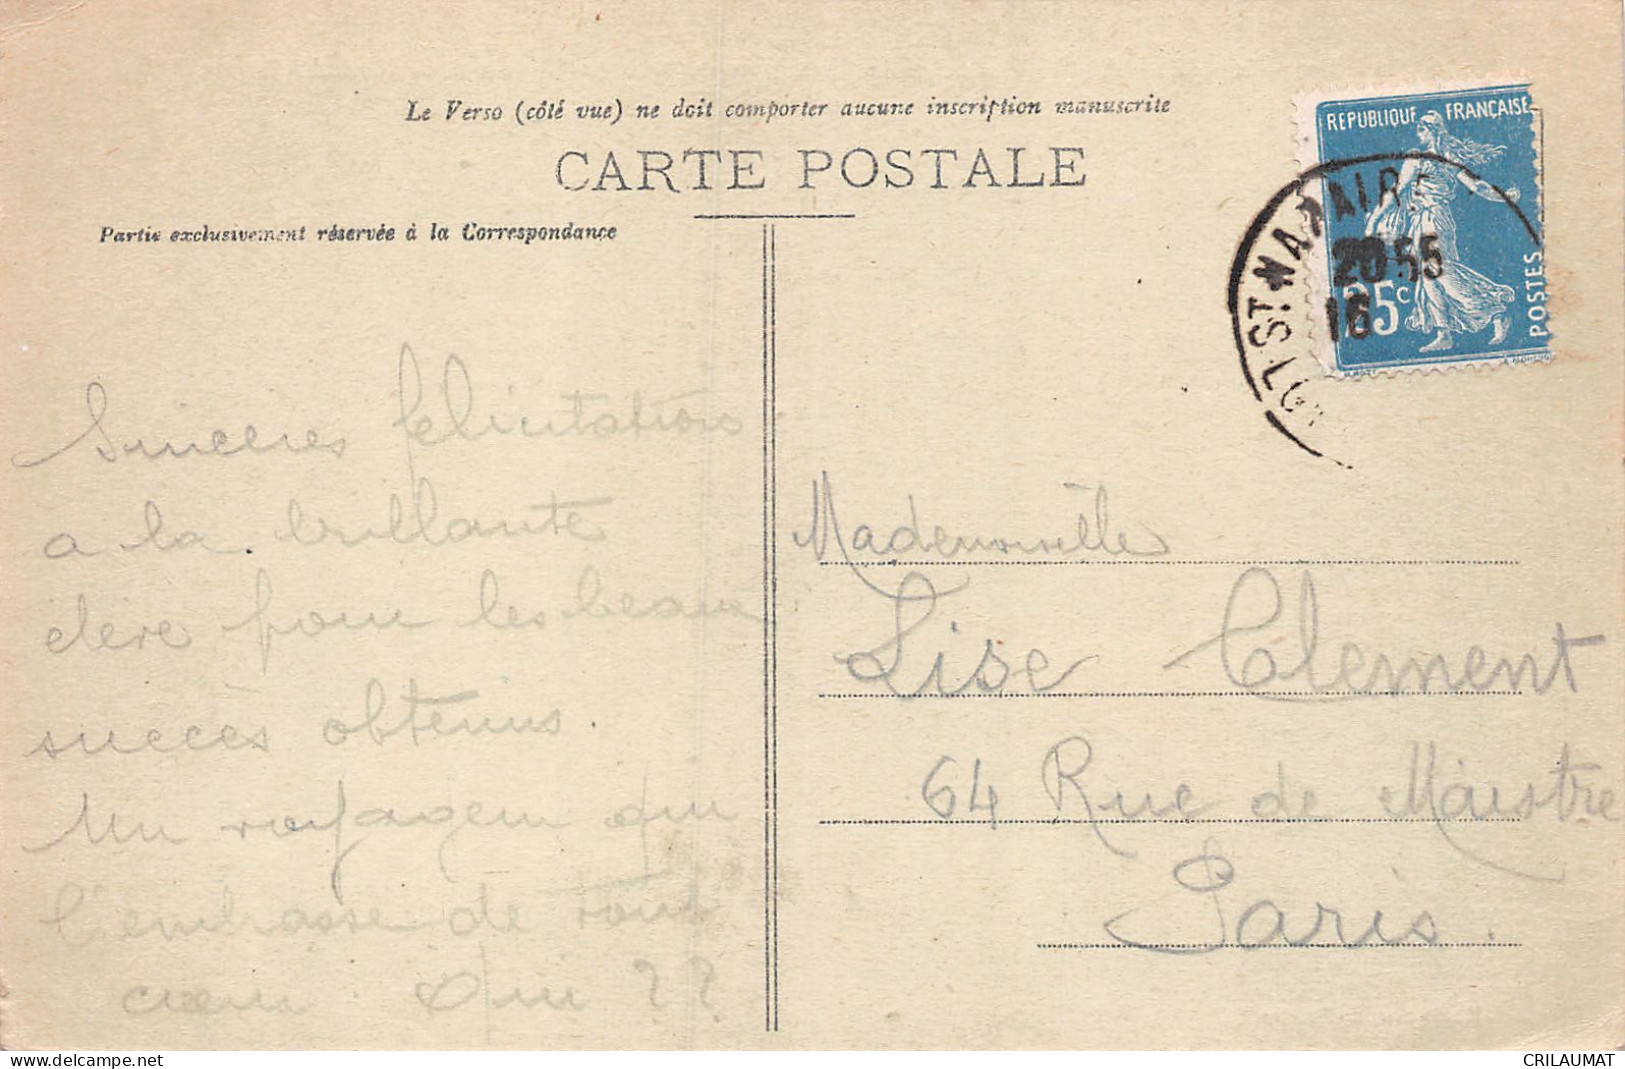 Le Verso (côté vue) ne doit comporter aucune inscription manuscrite
CARTE POSTALE
Partie exclusivement réservée à la Correspondance
REPUBLIQUE FRANÇAISE
POSTES
25c
ST NAZAIRE
20 55
16
Sincères félicitations
a la brillante
élève pour les beaux
succès obtenus.
Un voyageur qui
l'embrasse de tout
cœur. Qui ??
Mademoiselle
Lise Clement
64 Rue de Maistre
Paris.
www.delcampe.net
CRILAUMAT